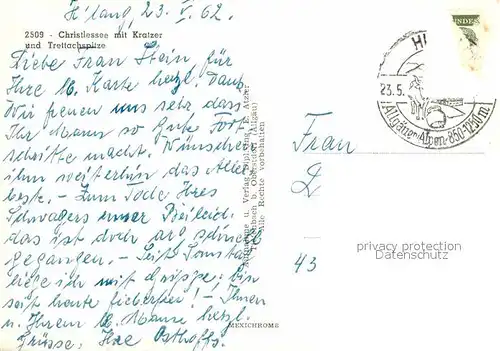 H'lang, 23. V. 62.
2509 - Christlessee mit Kratzer
und Trettachspitze
Liebe Frau Stein, für
Ihre lb. Karte herzl. Dank
Wir freuen uns sehr dass
Ihr Mann so gute Fort-
schritte macht. Wünschen
ihm weiterhin das Aller-
beste. - Zum Tode Ihres
Schwagers unser Beileid.
das ist doch arg schnell
gegangen. - Seit Sonntag
liege ich mit Grippe, bin
seit heute fieberfrei! - Ihnen
u. Ihrem lb. Manne herzl.
Grüsse: Ihre Osthoffs.
Aufnahme u. Verlag Dipl.-Ing. E. Atzer
b. Oberstdorf (Allgäu)
Alle Rechte vorbehalten
MEXICHROME
23.5.
Allgäuer Alpen · 850-1250 m
Frau
43
privacy protection
AnsichtskartenVersand.com